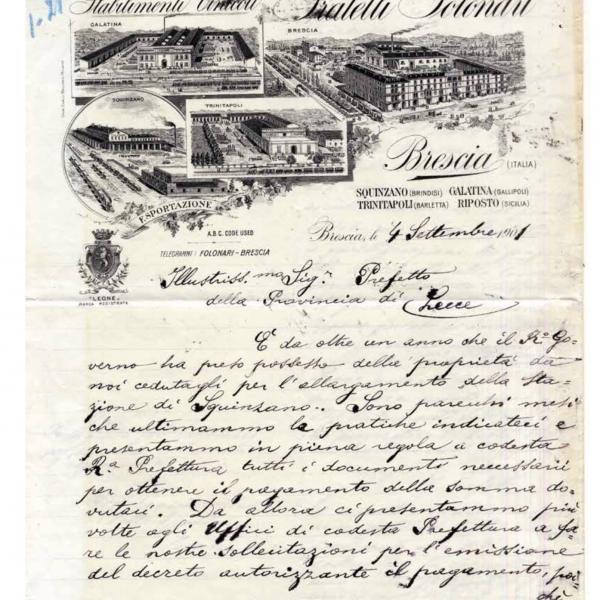 Stabilimenti Vinicoli
Fratelli Folonari
GALATINA
BRESCIA
SQUINZANO
TRINITAPOLI
ESPORTAZIONE
Brescia (ITALIA)
SQUINZANO (BRINDISI) GALATINA (GALLIPOLI)
TRINITAPOLI (BARLETTA) RIPOSTO (SICILIA)
A.B.C. CODE USED
TELEGRAMMI: FOLONARI-BRESCIA
"LEONE"
MARCA REGISTRATA
Brescia, le 4 Settembre 1901
Illustriss.mo Sigr. Prefetto
della Provincia di Lecce
E da oltre un anno che il R.o Go-
verno ha preso possesso della proprietà da
noi cedutagli per l'allargamento della Sta-
zione di Squinzano. Sono parecchi mesi
che ultimammo le pratiche indicateci e
presentammo in piena regola a codesta
R.a Prefettura tutti i documenti necessarii
per ottenere il pagamento della somma do-
vutaci. Da allora ci presentammo più
volte agli Uffici di codesta Prefettura a fa-
re le nostre sollecitazioni per l'emissione
del decreto autorizzante il pagamento, poi-
chè